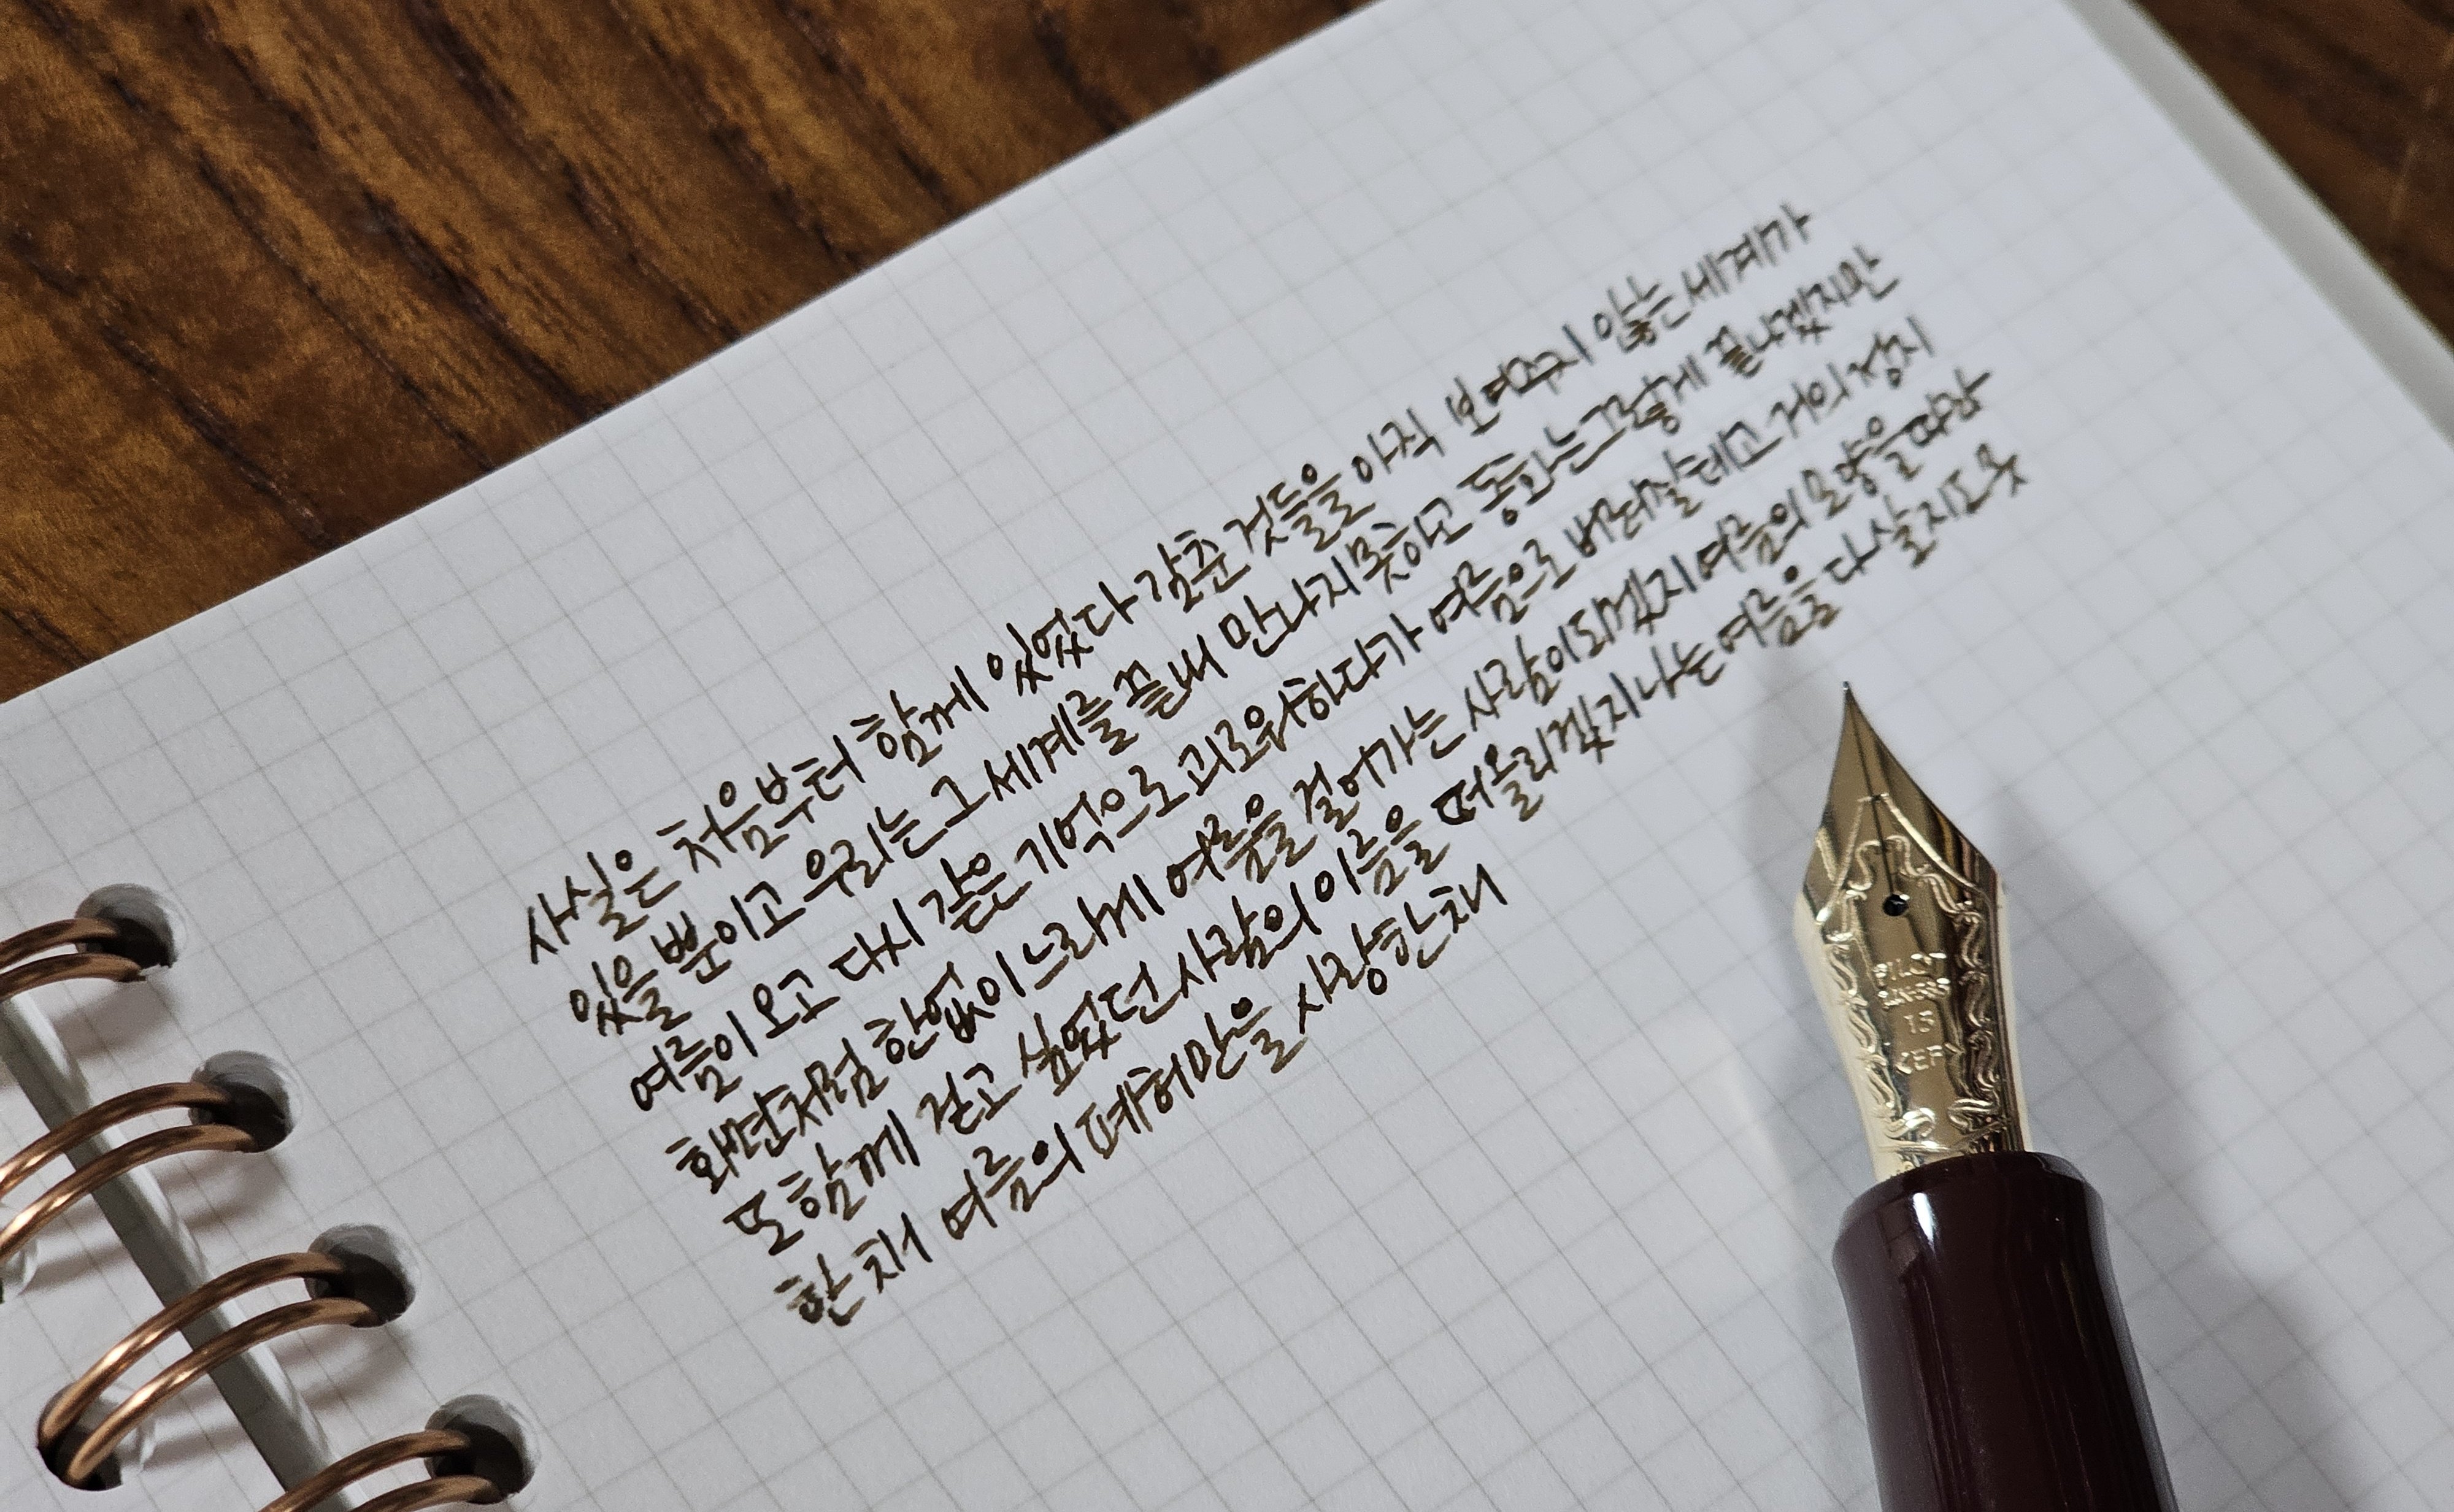 사실은 처음부터 함께 있었다 감춘 것들을 아직 보여주지 않는 세계가
있을 뿐이고 우리는 그 세계를 끝내 만나지 못하고 통화는 그렇게 끝나겠지만
여름이 오고 다시 같은 기억으로 괴로워하다가 여름으로 버려질 테고 거의 정지
화면처럼 한없이 느리게 여름을 걸어가는 사람이 되겠지 여름의 모양을 따라
또 함께 걷고 싶었던 사람의 이름을 떠올리겠지 지나는 여름을 다 살지도 못
한 채 여름의 폐허만을 사랑한 채
PILOT
15